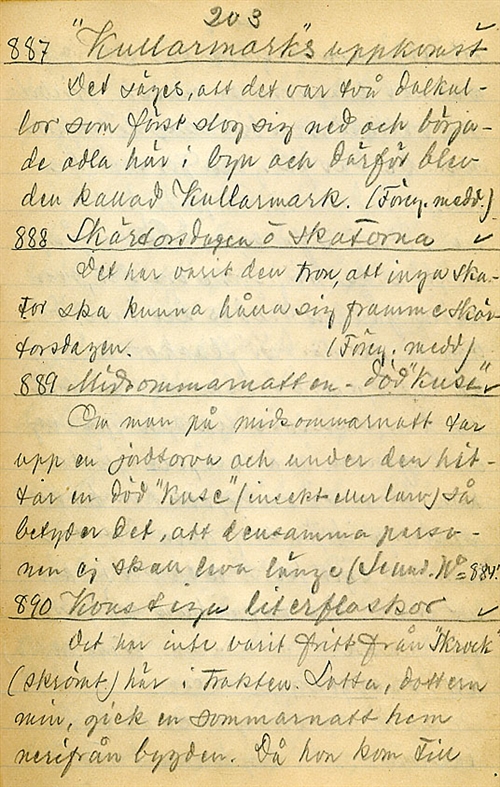 203
887 "Kullarmark"s uppkomst
Det säges, att det var två dalkul-
lor som först slog sig ned och börja-
de odla här i byn och därför blev
den kallad Kullarmark. (Föreg. medd.)
888 Skärtorsdagen o skatorna
Det har varit den tron, att inga ska-
tor ska kunna hålla sig framme skär-
torsdagen. (Föreg. medd.)
889 Midsommarnatten - död "kuse"
Om man på midsommarnatt tar
upp en jordtorva och under den hit-
tar en död "kuse" (insekt eller larv) så
betyder det, att densamma perso-
nen ej skall leva länge ( N:o 884
890 Konstiga literflaskor
Det har inte varit fritt från "skrock"
(skrömt.) här i trakten. Lotta, dottern
min, gick en sommarnatt hem
nerifrån bygden. Då hon kom till